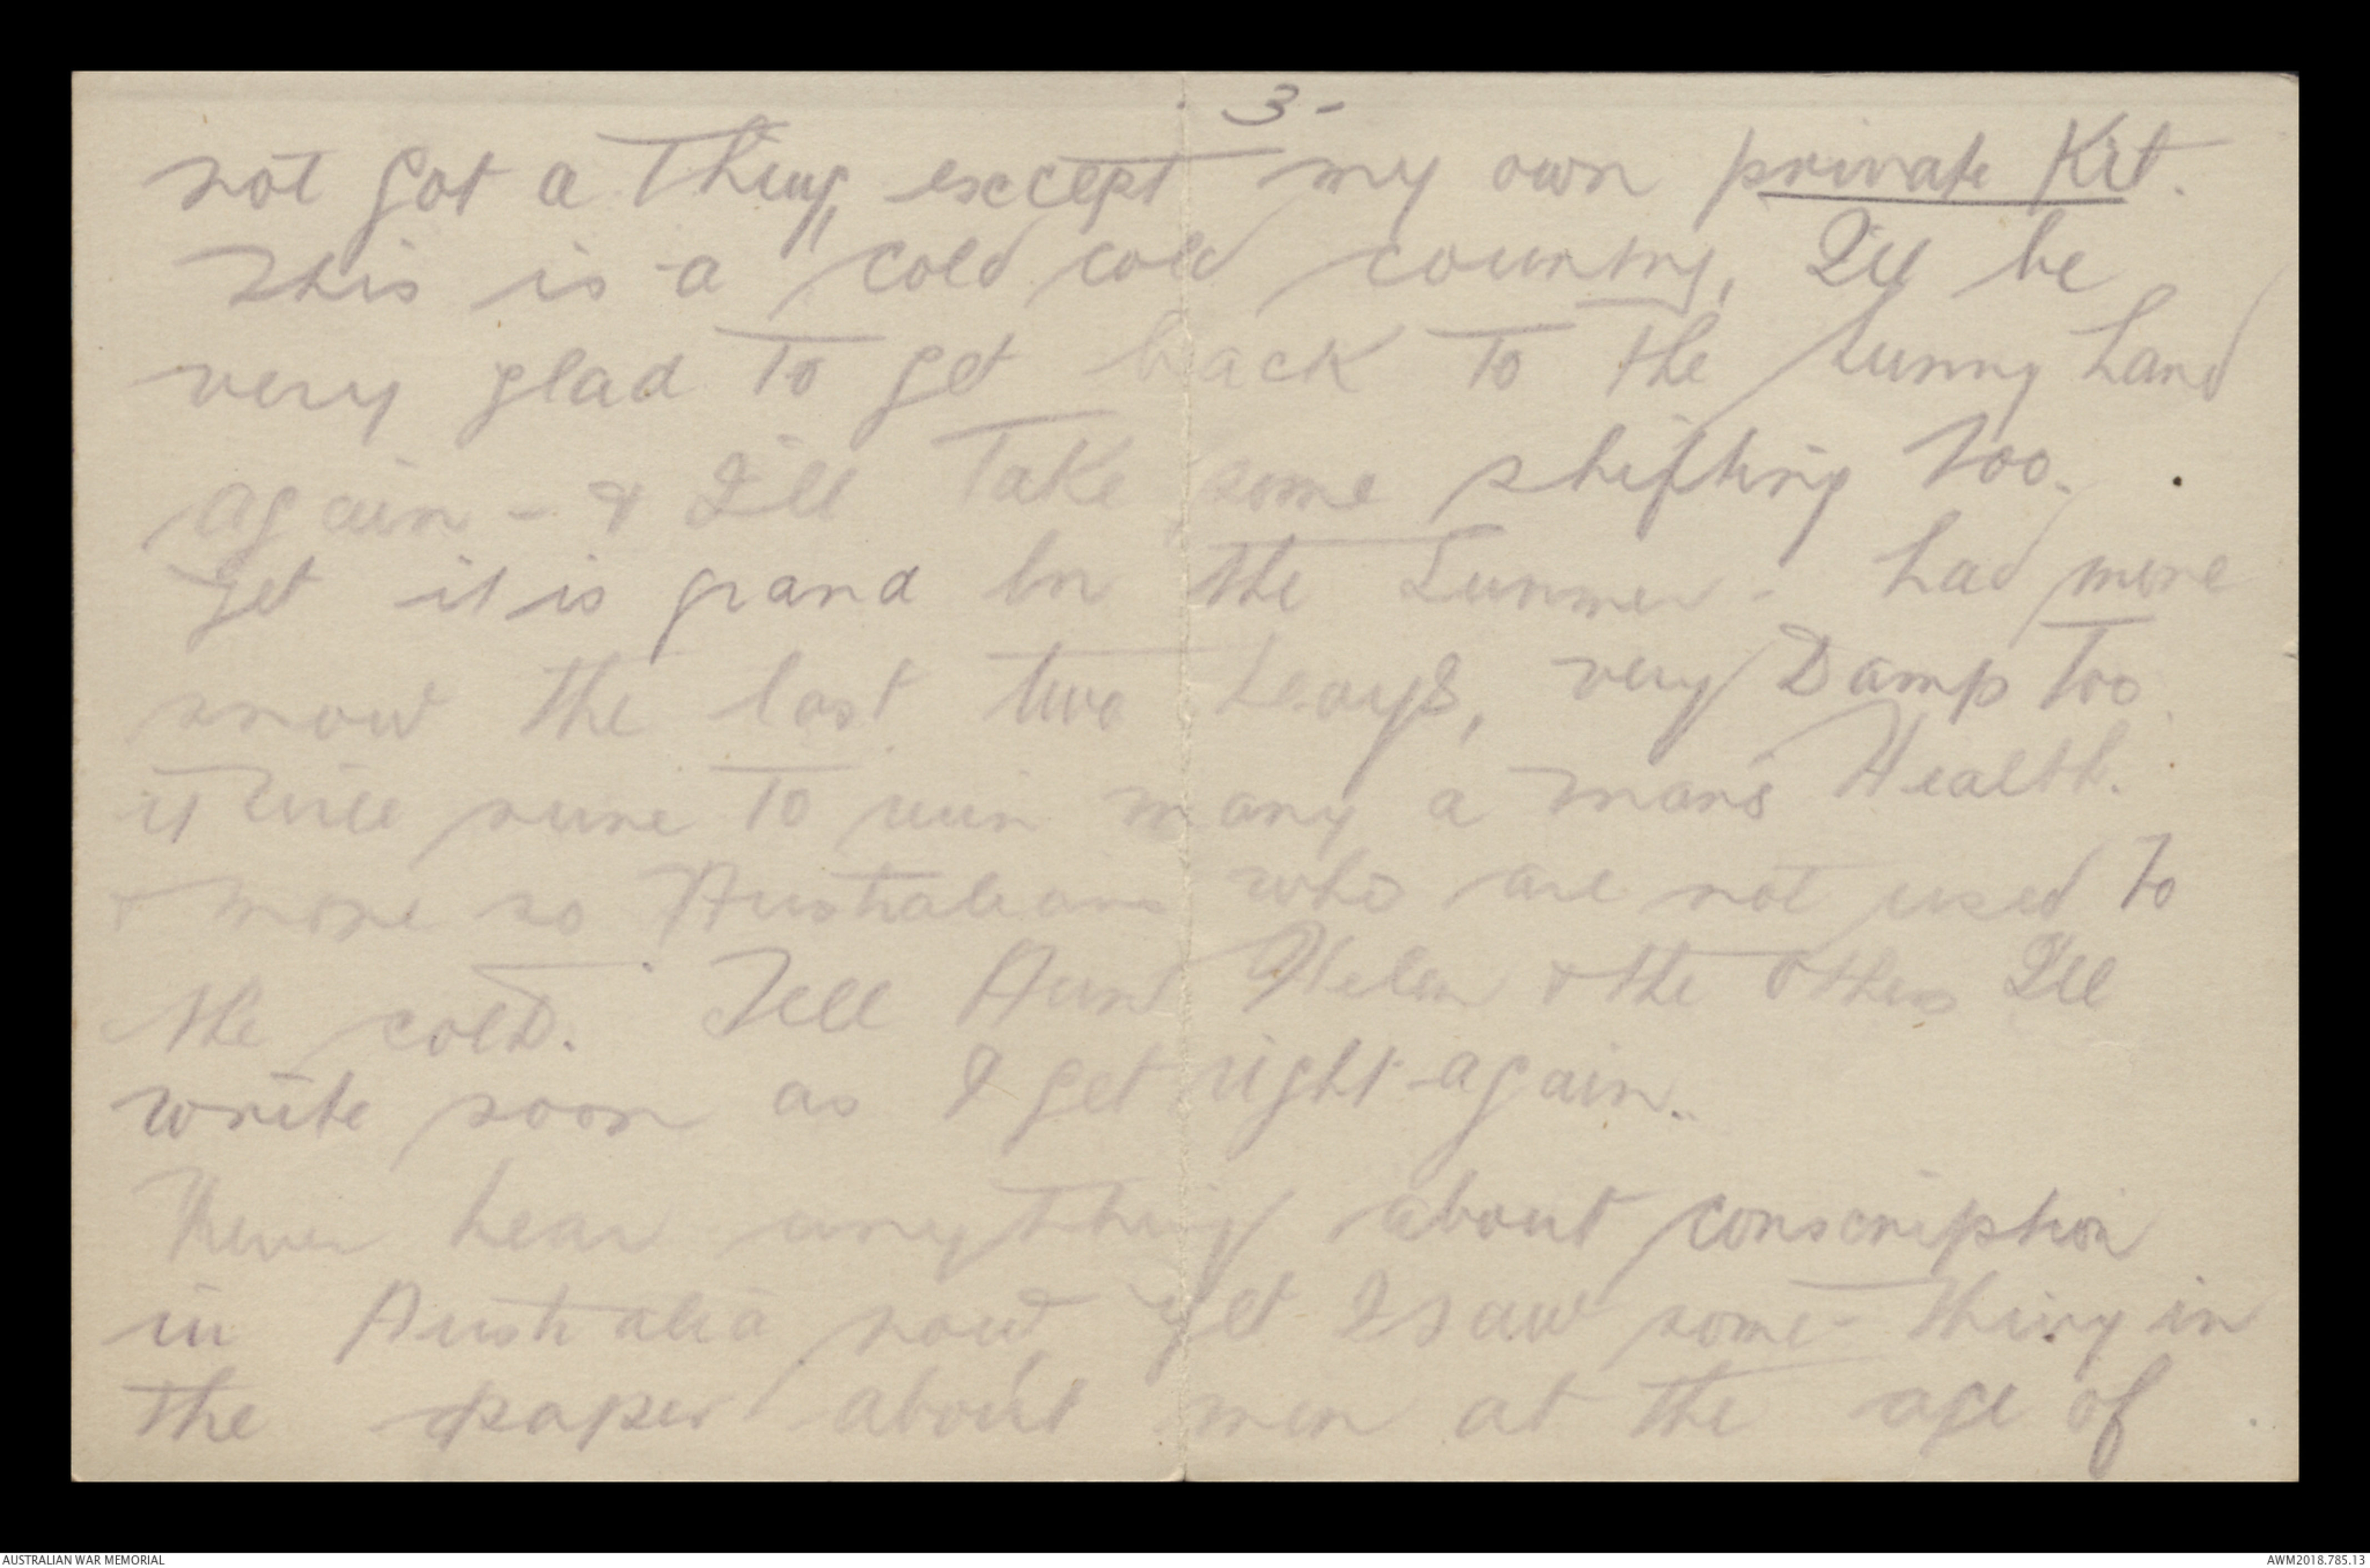 - 3 -
not got a thing except my own private Kit.
This is a cold cold country, I'll be
very glad to get back to the Sunny Land
again - & I'll take some shifting too.
Yet it is grand in the Summer - had more
snow the last two days, very Damp too
it will sure to ruin many a man's Health.
& more so Australians who are not used to
the cold. Tell Aunt Helen & the others I'll
write soon as I get right again.
Never hear anything about conscription
in Australia now yet I saw some-thing in
the paper about men at the age of
AUSTRALIAN WAR MEMORIAL
AWM2018.785.13